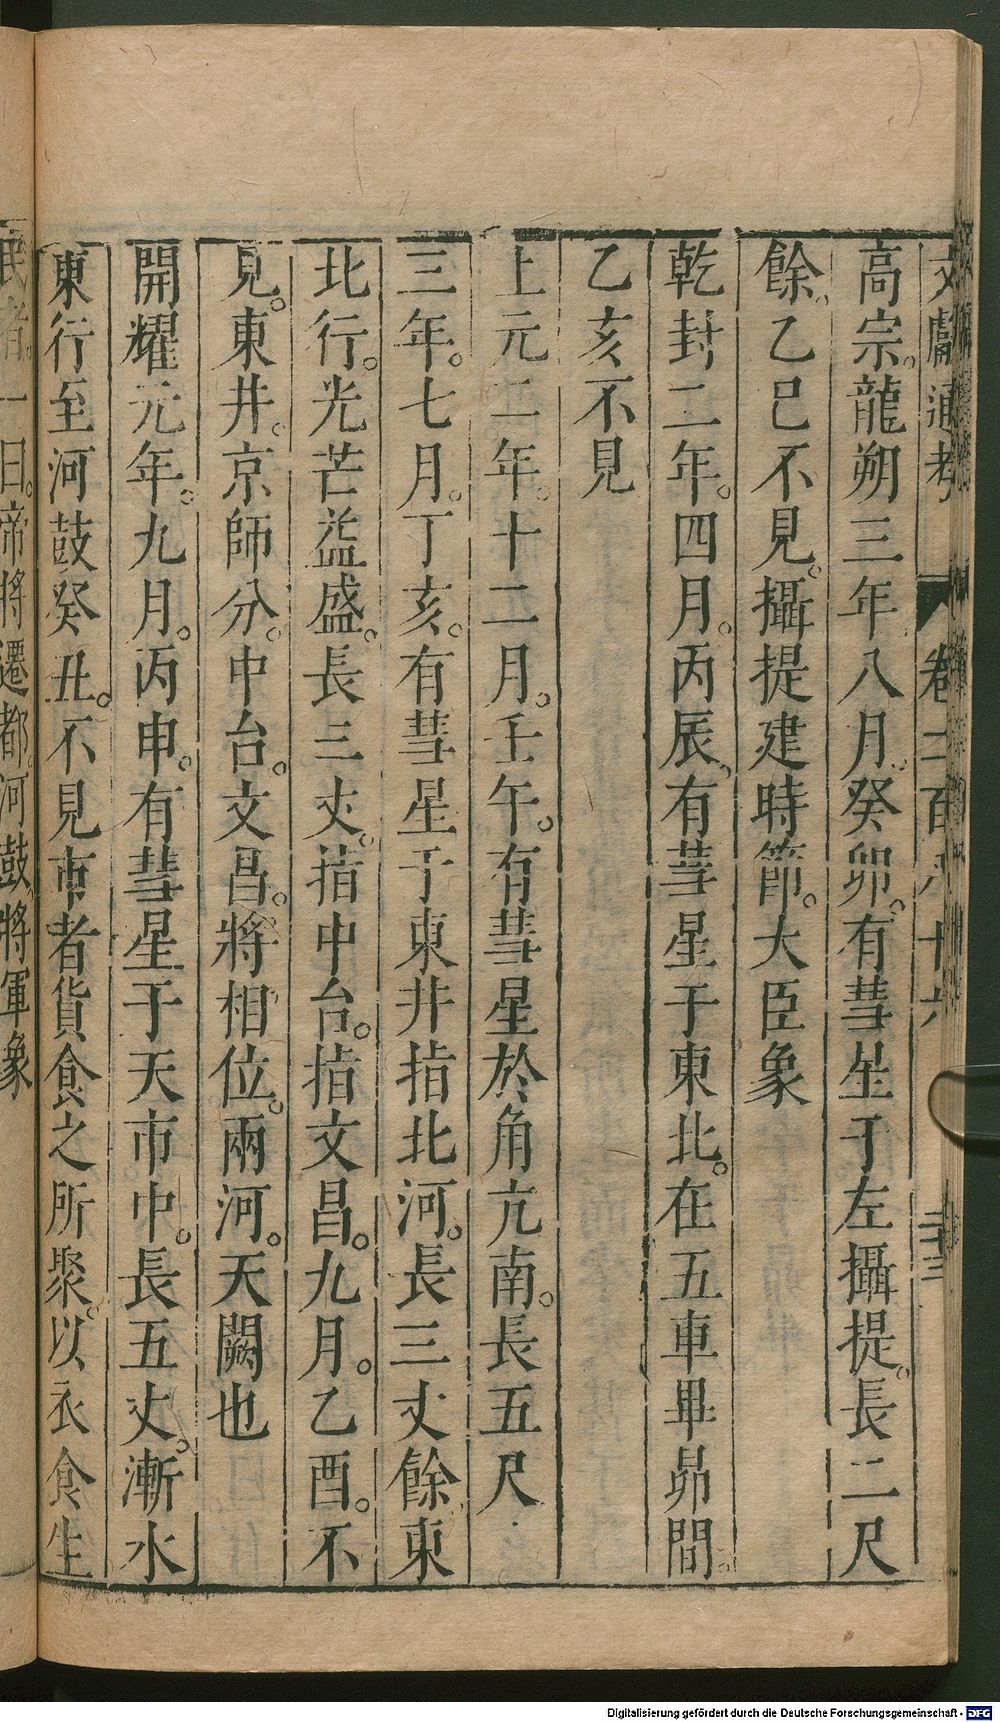 文獻通考 卷二百八十六 二十三
高宗。龍朔三年八月。癸卯。有彗星于左攝提。長二尺
餘。乙巳不見。攝提建時節。大臣象
乾封二年。四月。丙辰。有彗星于東北。在五車畢昴間。
乙亥不見
上元二年。十二月。壬午。有彗星於角亢南。長五尺
三年。七月。丁亥。有彗星于東井指北河。長三丈餘。東
北行。光芒益盛。長三丈。指中台。指文昌。九月。乙酉。不
見。東井。京師分。中台。文昌。將相位。兩河。天闕也
開耀元年。九月。丙申。有彗星于天市中。長五丈。漸水
東行至河鼓癸丑。不見市者貨食之所聚。以衣食生
民者。一曰。帝將遷都。河鼓。將軍象
Digitalisierung gefördert durch die Deutsche Forschungsgemeinschaft - DFG